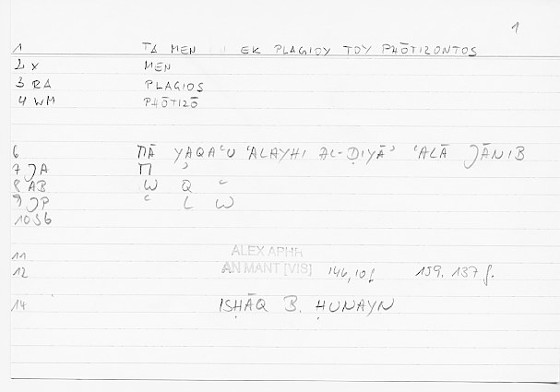 1
1 TA MEN EK PLAGIOY TOY PHŌTIZONTOS
2 X MEN
3 RA PLAGIOS
4 WM PHŌTIZŌ
6 MĀ YAQAʿU ʿALAYHI AL-ḌIYĀʾ ʿALĀ JĀNIB
7 JA M ʾ
8 AB W Q ʿ
9 JP ʿ L W
10 SG
11 ALEX APHR
12 AN MANT [VIS] 146,10f 159.137 f.
14 ISḤĀQ B. ḤUNAYN